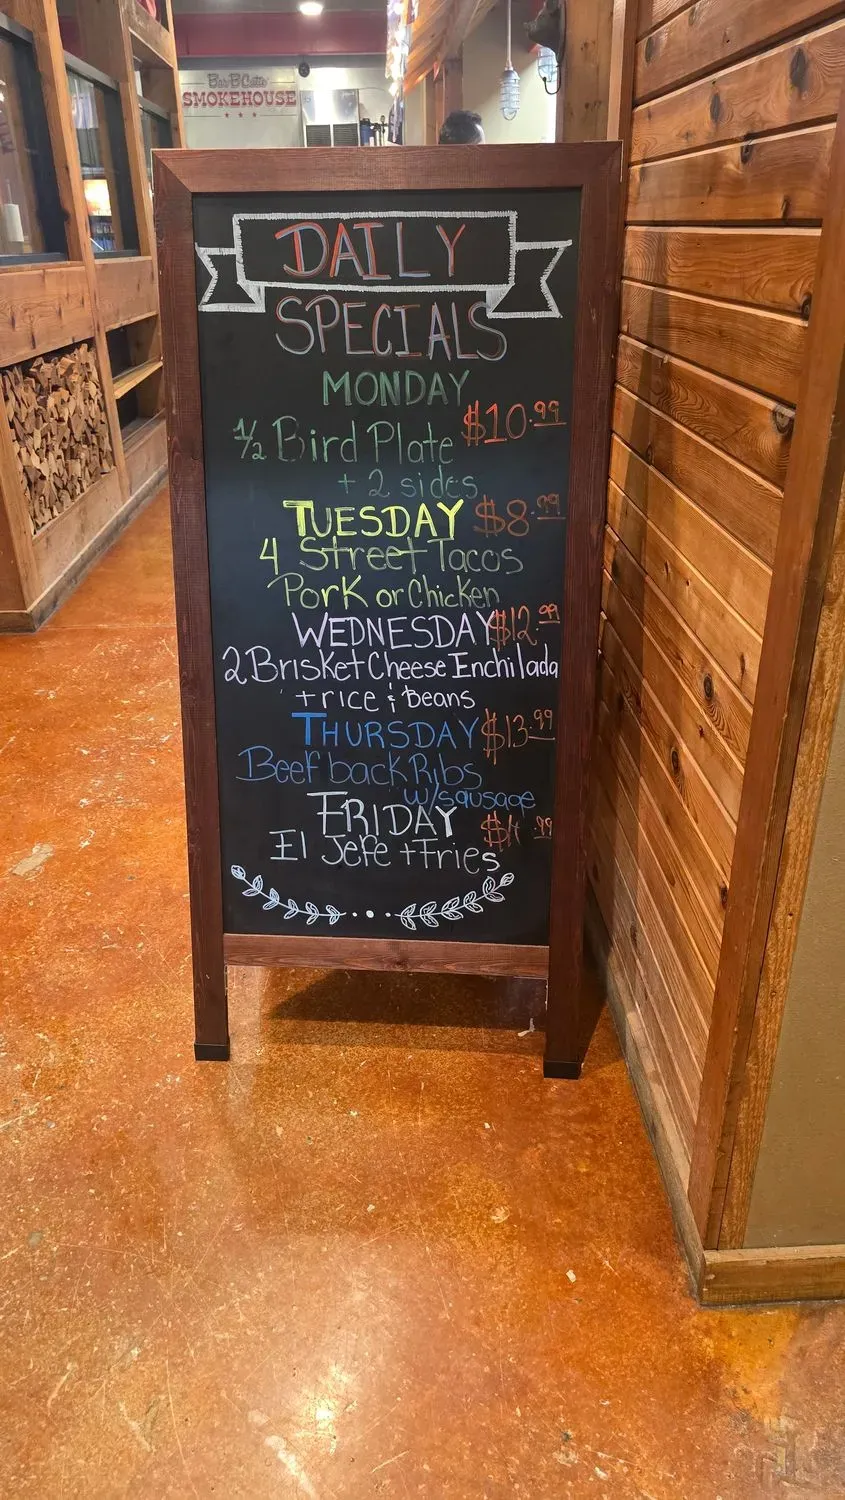 Bar B Cutie
SMOKEHOUSE
DAILY
SPECIALS
MONDAY
$10.99
1/2 Bird Plate
+ 2 sides
TUESDAY $8.99
4 Street Tacos
Pork or Chicken
WEDNESDAY $12.99
2 Brisket Cheese Enchilada
+ rice & Beans
THURSDAY $13.99
Beef back Ribs
w/sausage
FRIDAY
El Jefe + Fries